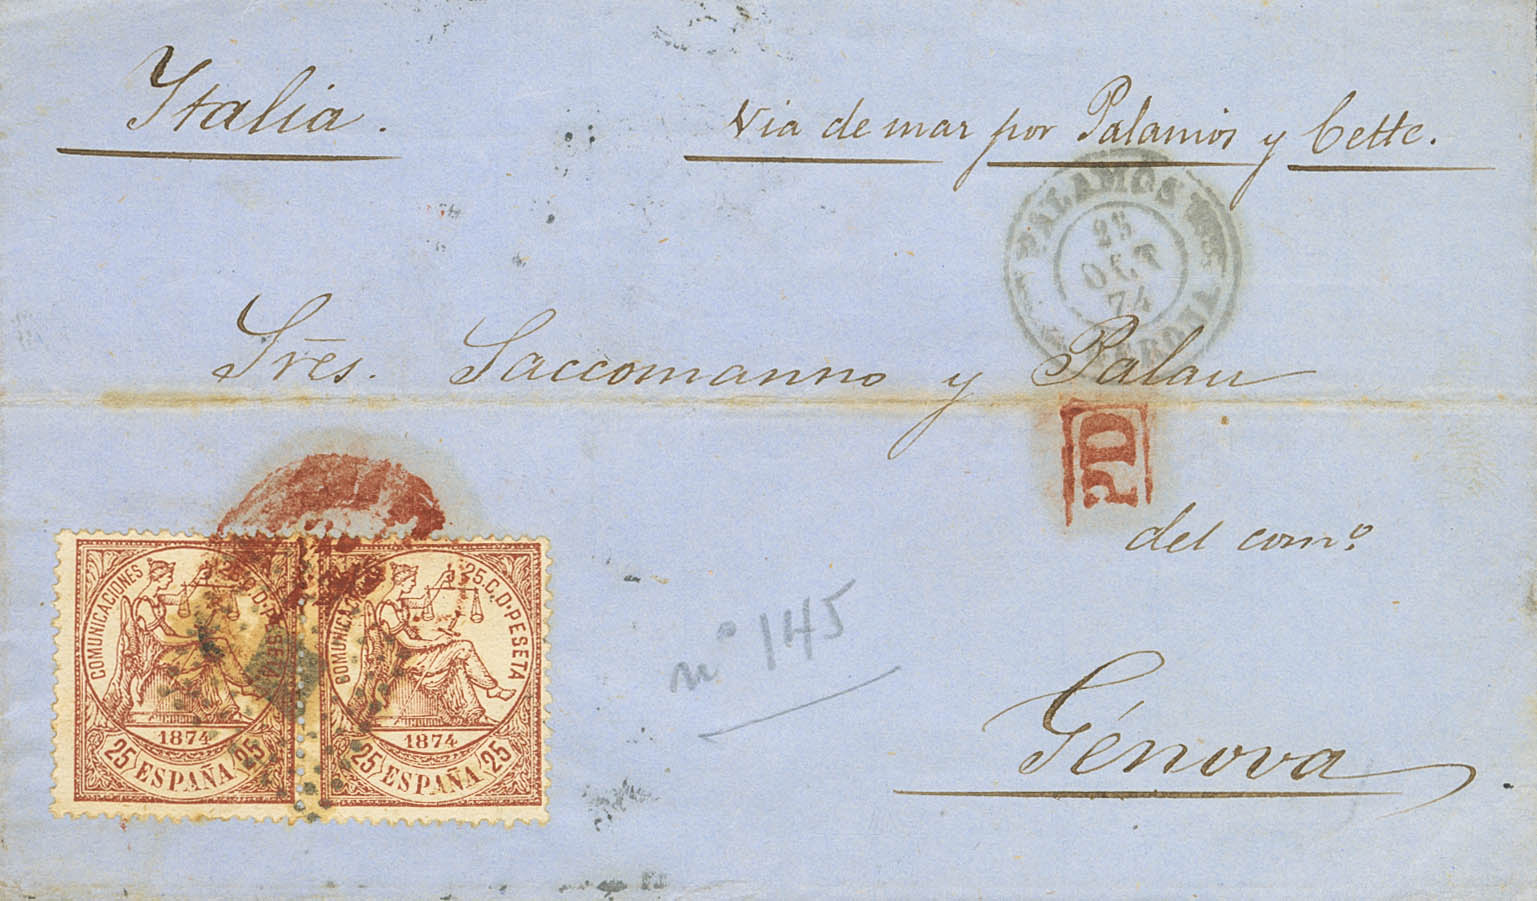 Italia.
Via de mar por Palamós y Cette.
PALAMOS
OCT
74
GERONA
Sres. Saccomanno y Palau
PD
del como.
nº 145
Génova
COMUNICACIONES
1874
25 ESPAÑA 25
COMUNICACIONES 25. C. D. PESETA
1874
25 ESPAÑA 25